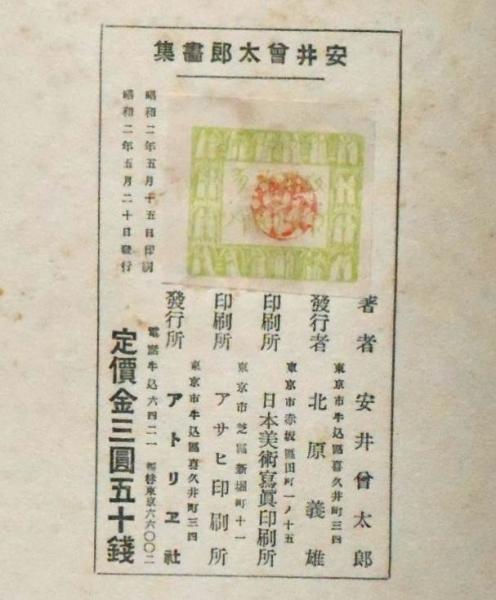 安井曾太郎畫集
昭和二年五月十五日印刷
昭和二年五月二十日發行
著者 安井曾太郎
東京市牛込區喜久井町三四
發行者 北原義雄
東京市赤坂區田町一ノ十五
印刷所 日本美術寫眞印刷所
東京市芝區新堀町十一
印刷所 アサヒ印刷所
東京市牛込區喜久井町三四
發行所 アトリヱ社
電話牛込六四二一 振替東京六六〇〇二
定價金三圓五十錢